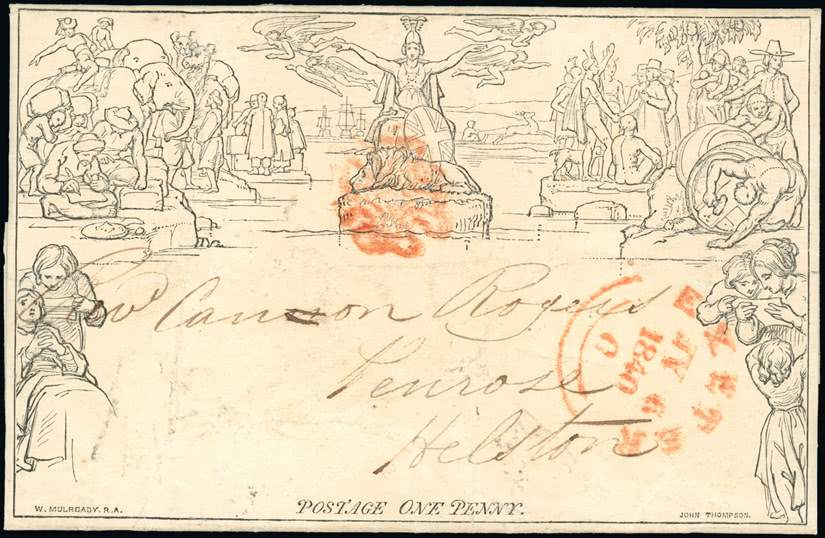 Revd Cannon Rogers
Penrose
Helston
EXETER
JY 6
1840
POSTAGE ONE PENNY.
W. MULREADY. R.A.
JOHN THOMPSON.